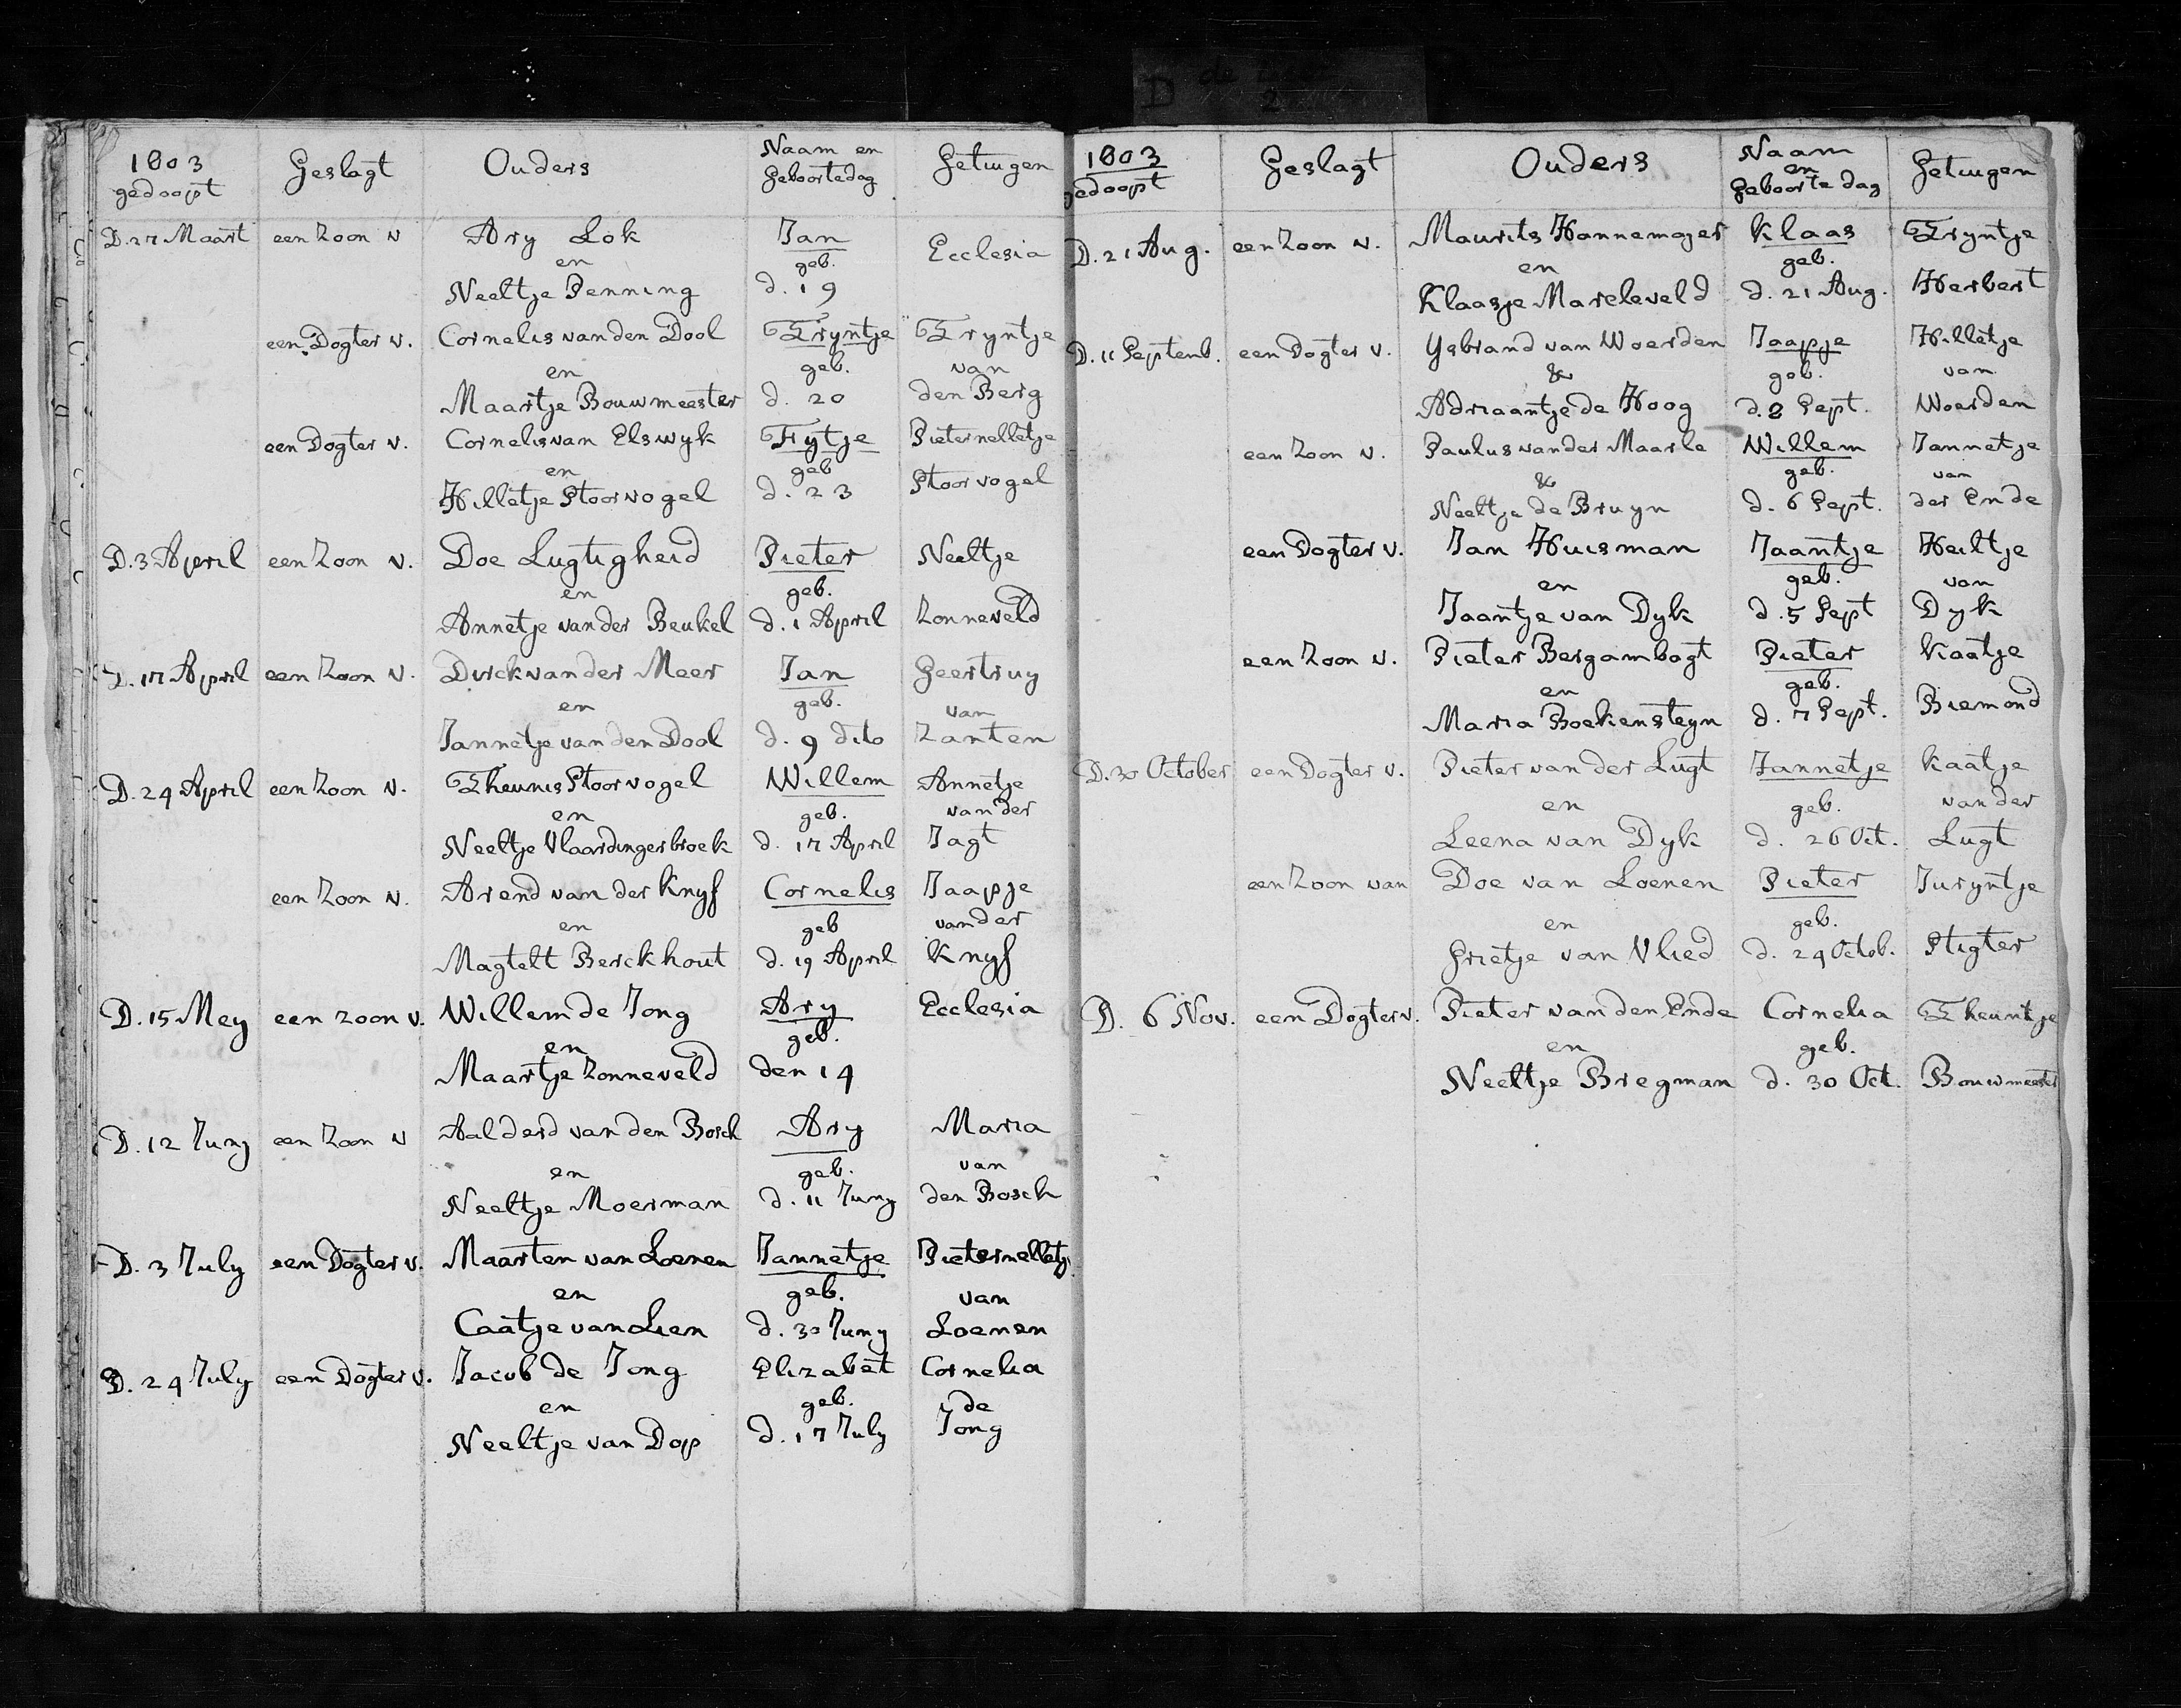 1803 gedoopt Geslagt Ouders Naam en Geboortedag Getuigen
D. 27 Maart een Zoon v Ary Lok Jan Ecclesia
en geb.
Neeltje Penning d. 19
een Dogter v. Cornelis van den Dool Tryntje Tryntje
en geb. van
Maartje Bouwmeester d. 20 den Berg
een Dogter v. Cornelis van Elswyk Fytje Pieternelletje
en geb
Hilletje Stoorvogel d. 23 Stoorvogel
D. 3 April een Zoon v. Doe Lugtigheid Pieter Neeltje
en geb.
Annetje van der Beukel d. 1 April Zonneveld
D. 17 April een Zoon v. Dirck van der Meer Jan Geertruy
en geb. van
Jannetje van den Dool d. 9 dito Zanten
D. 24 April een Zoon v. Theunis Stoorvogel Willem Annetje
en geb. van der
Neeltje Vlaardingerbroek d. 17 April Jagt
een Zoon v. Arend van der Knyf Cornelis Jaapje
en geb van der
Magtelt Berckhout d. 19 April Knyf
D. 15 Mey een zoon v. Willem de Jong Ary Ecclesia
en geb.
Maartje Zonneveld den 14
D. 12 Juny een Zoon v Aalderd van den Bosch Ary Maria
en geb. van
Neeltje Moerman d. 11 Juny den Bosch
D. 3 July een Dogter v. Maarten van Loenen Jannetje Pieternelletje
en geb. van
Caatje van Lien d. 30 Juny Loenen
D. 24 July een Dogter v. Jacob de Jong Elizabet Cornelia
en geb. de
Neeltje van Dop d. 17 July Jong
1803 gedoopt Geslagt Ouders Naam en Geboorte dag Getuigen
D. 21 Aug. een Zoon v. Maurits Hannemajer Klaas Tryntje
en geb.
Klaasje Mareleveld d. 21 Aug. Herbert
D. 11 Septenb. een Dogter v. Ysbrand van Woerden Jaapje Hilletje
& geb. van
Adriaantje de Hoog d. 8 Sept. Woerden
een Zoon v. Paulus van der Maarle Willem Jannetje
& geb. van
Neeltje de Bruyn d. 6 Sept. der Ende
een Dogter v. Jan Huisman Jaantje Heiltje
en geb. van
Jaantje van Dyk d. 5 Sept Dyk
een Zoon v. Pieter Bergambagt Pieter Kaatje
en geb.
Maria Boekensteyn d. 7 Sept. Biemond
D. 30 October een Dogter v. Pieter van der Lugt Jannetje Kaatje
en geb. van der
Leena van Dyk d. 26 Oct. Lugt
een Zoon van Doe van Loenen Pieter Juryntje
en geb.
Grietje van Vlied d. 24 Octob. Stigter
D. 6 Nov. een Dogter v. Pieter van den Ende Cornelia Theuntje
en geb.
Neeltje Bregman d. 30 Oct. Bouwmeester